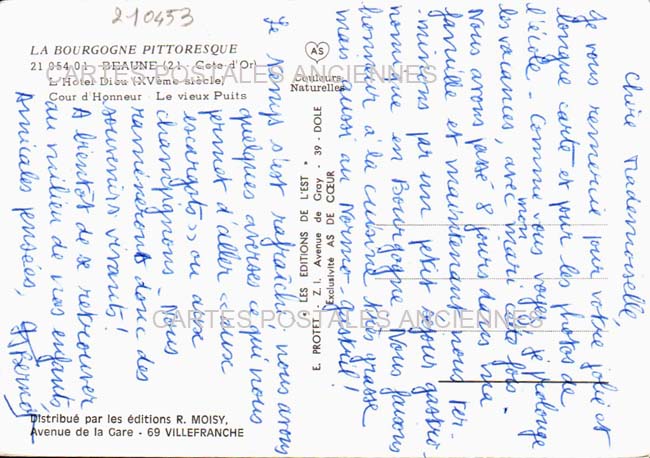 210453
LA BOURGOGNE PITTORESQUE
21 054 01 - BEAUNE (21 - Côte-d'Or)
L'Hôtel Dieu (XVème siècle)
Cour d'Honneur - Le vieux Puits
AS
Couleurs
Naturelles
"LES EDITIONS DE L'EST"
E. PROTET - Z. I. Avenue de Gray - 39 - DOLE
Exclusivité AS DE CŒUR
Chère Mademoiselle,
Je vous remercie pour votre jolie et
longue carte et pour les photos de
l'école - Comme vous voyez je prolonge
les vacances, avec mon mari cette fois
Nous avons passé 8 jours dans ma
famille et maintenant nous ter-
minons par un petit séjour gastro-
nomique en Bourgogne. Nous faisons
honneur à la cuisine très grasse
mais aussi au Normo-gastryl !
Le temps s'est rafraîchi, nous avons
quelques averses ce qui nous
permet d'aller "aux
escargots" ou aux
champignons. Nous
ramènerons donc des
souvenirs vivants !
A bientôt de se retrouver
au milieu de nos enfants,
Amicales pensées,
Distribué par les éditions R. MOISY,
Avenue de la Gare - 69 VILLEFRANCHE
CARTES POSTALES ANCIENNES
CARTES POSTALES ANCIENNES